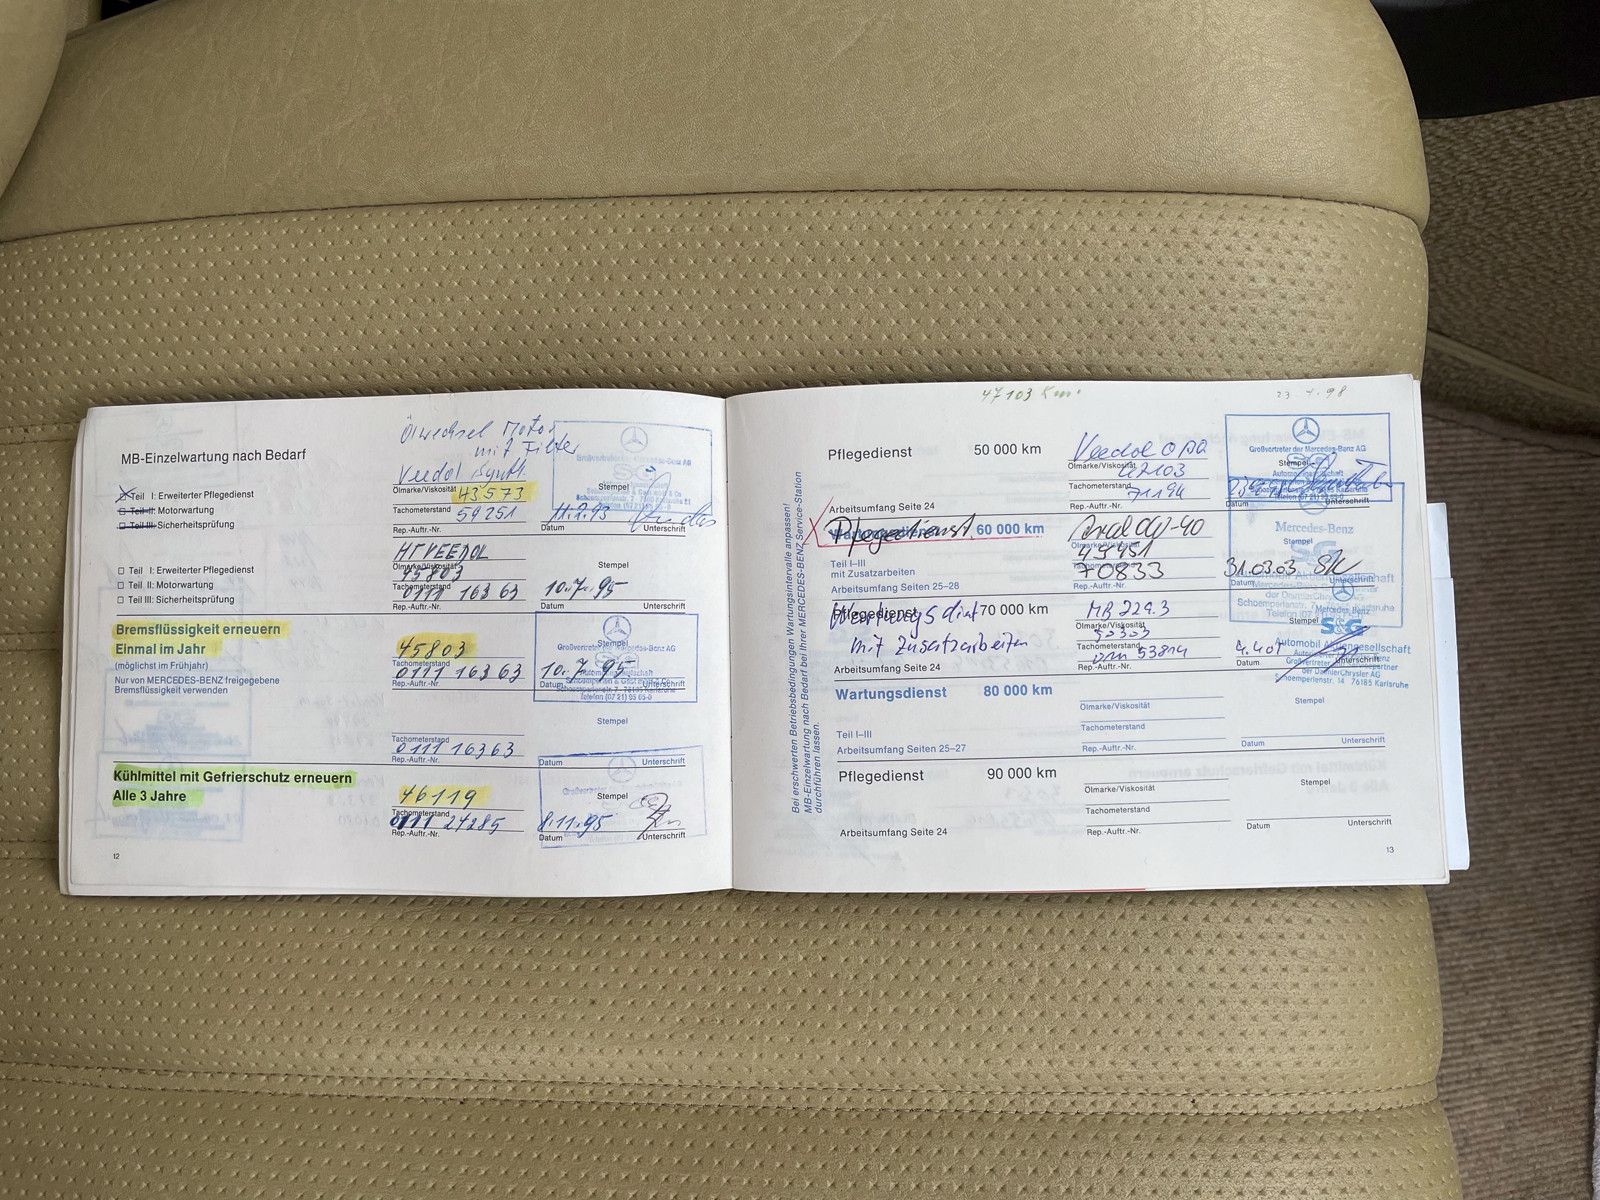 Ölwechsel Motor
mit Filter
MB-Einzelwartung nach Bedarf
Veedol Synth.
Ölmarke/Viskosität 43573
Teil I: Erweiterter Pflegedienst
Teil II: Motorwartung
Teil III: Sicherheitsprüfung
Tachometerstand
59251
Rep.-Auftr.-Nr.
Großvertreter der Mercedes-Benz AG
Stempel
11.2.93
Datum
Unterschrift
HT VEEDOL
Ölmarke/Viskosität
45803
Teil I: Erweiterter Pflegedienst
Teil II: Motorwartung
Teil III: Sicherheitsprüfung
Tachometerstand
0111 16363
Rep.-Auftr.-Nr.
Stempel
10.7.95
Datum
Unterschrift
Bremsflüssigkeit erneuern
Einmal im Jahr
(möglichst im Frühjahr)
Nur von MERCEDES-BENZ freigegebene
Bremsflüssigkeit verwenden
45803
Tachometerstand
0111 16363
Rep.-Auftr.-Nr.
Stempel
Großvertreter der Mercedes-Benz AG
S&G
10.7.95
Datum
Unterschrift
Schoemperlenstr. 7, 76185 Karlsruhe
Telefon (07 21) 95 65-0
Stempel
Tachometerstand
0111 16363
Rep.-Auftr.-Nr.
Datum
Unterschrift
Kühlmittel mit Gefrierschutz erneuern
Alle 3 Jahre
46119
Tachometerstand
0111 27285
Rep.-Auftr.-Nr.
Stempel
8.11.95
Datum
Unterschrift
12
47103 Km
23 4.98
Bei erschwerten Betriebsbedingungen Wartungsintervalle anpassen!
MB-Einzelwartung nach Bedarf bei Ihrer MERCEDES-BENZ Service-Station
durchführen lassen.
Pflegedienst 50 000 km
Veedol
Ölmarke/Viskosität
47103
Tachometerstand
71194
Rep.-Auftr.-Nr.
Arbeitsumfang Seite 24
Großvertreter der Mercedes-Benz AG
Stempel
S&G
Datum
Unterschrift
Pflegedienst
Wartungsdienst 60 000 km
Teil I–III
mit Zusatzarbeiten
Arbeitsumfang Seiten 25–28
Ölmarke/Viskosität
49451
Tachometerstand
70833
Rep.-Auftr.-Nr.
Mercedes-Benz
Stempel
S&G
31.03.03
Datum
Unterschrift
der DaimlerChrysler AG
Pflegedienst 70 000 km
Wartungsdienst
mit Zusatzarbeiten
Arbeitsumfang Seite 24
MB 229.3
Ölmarke/Viskosität
50303
Tachometerstand
53814
Rep.-Auftr.-Nr.
Mercedes-Benz
Stempel
S&G
Automobil Aktiengesellschaft
Datum
Unterschrift
der DaimlerChrysler AG
Schoemperlenstr. 14 76185 Karlsruhe
Wartungsdienst 80 000 km
Teil I–III
Arbeitsumfang Seiten 25–27
Ölmarke/Viskosität
Tachometerstand
Rep.-Auftr.-Nr.
Stempel
Datum
Unterschrift
Pflegedienst 90 000 km
Arbeitsumfang Seite 24
Ölmarke/Viskosität
Tachometerstand
Rep.-Auftr.-Nr.
Stempel
Datum
Unterschrift
13